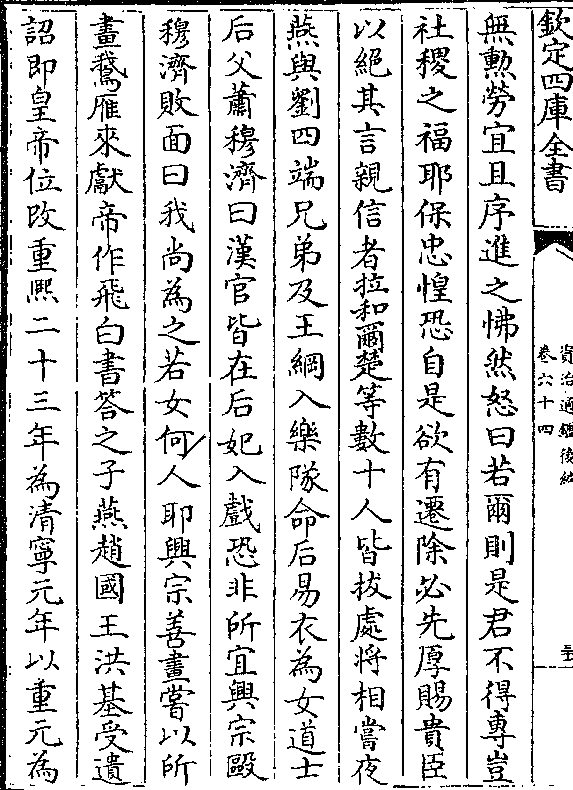 欽定四庫全書
資治通鑑後編
卷六十四
無勲勞宜且序進之怫然怒曰若爾則是君不得專豈
社稷之福耶保忠惶恐自是欲有遷除必先厚賜貴臣
以絕其言親信者拉和爾楚等數十人皆拔處將相嘗夜
燕與劉四端兄弟及王綱入樂隊命后易衣為女道士
后父蕭穆濟曰漢官皆在后妃入戲恐非所宜興宗毆
穆濟敗面曰我尚為之若女何人耶興宗善畫嘗以所
畫鵝雁來獻帝作飛白書答之子燕趙國王洪基受遺
詔即皇帝位改重熙二十三年為清寧元年以重元為